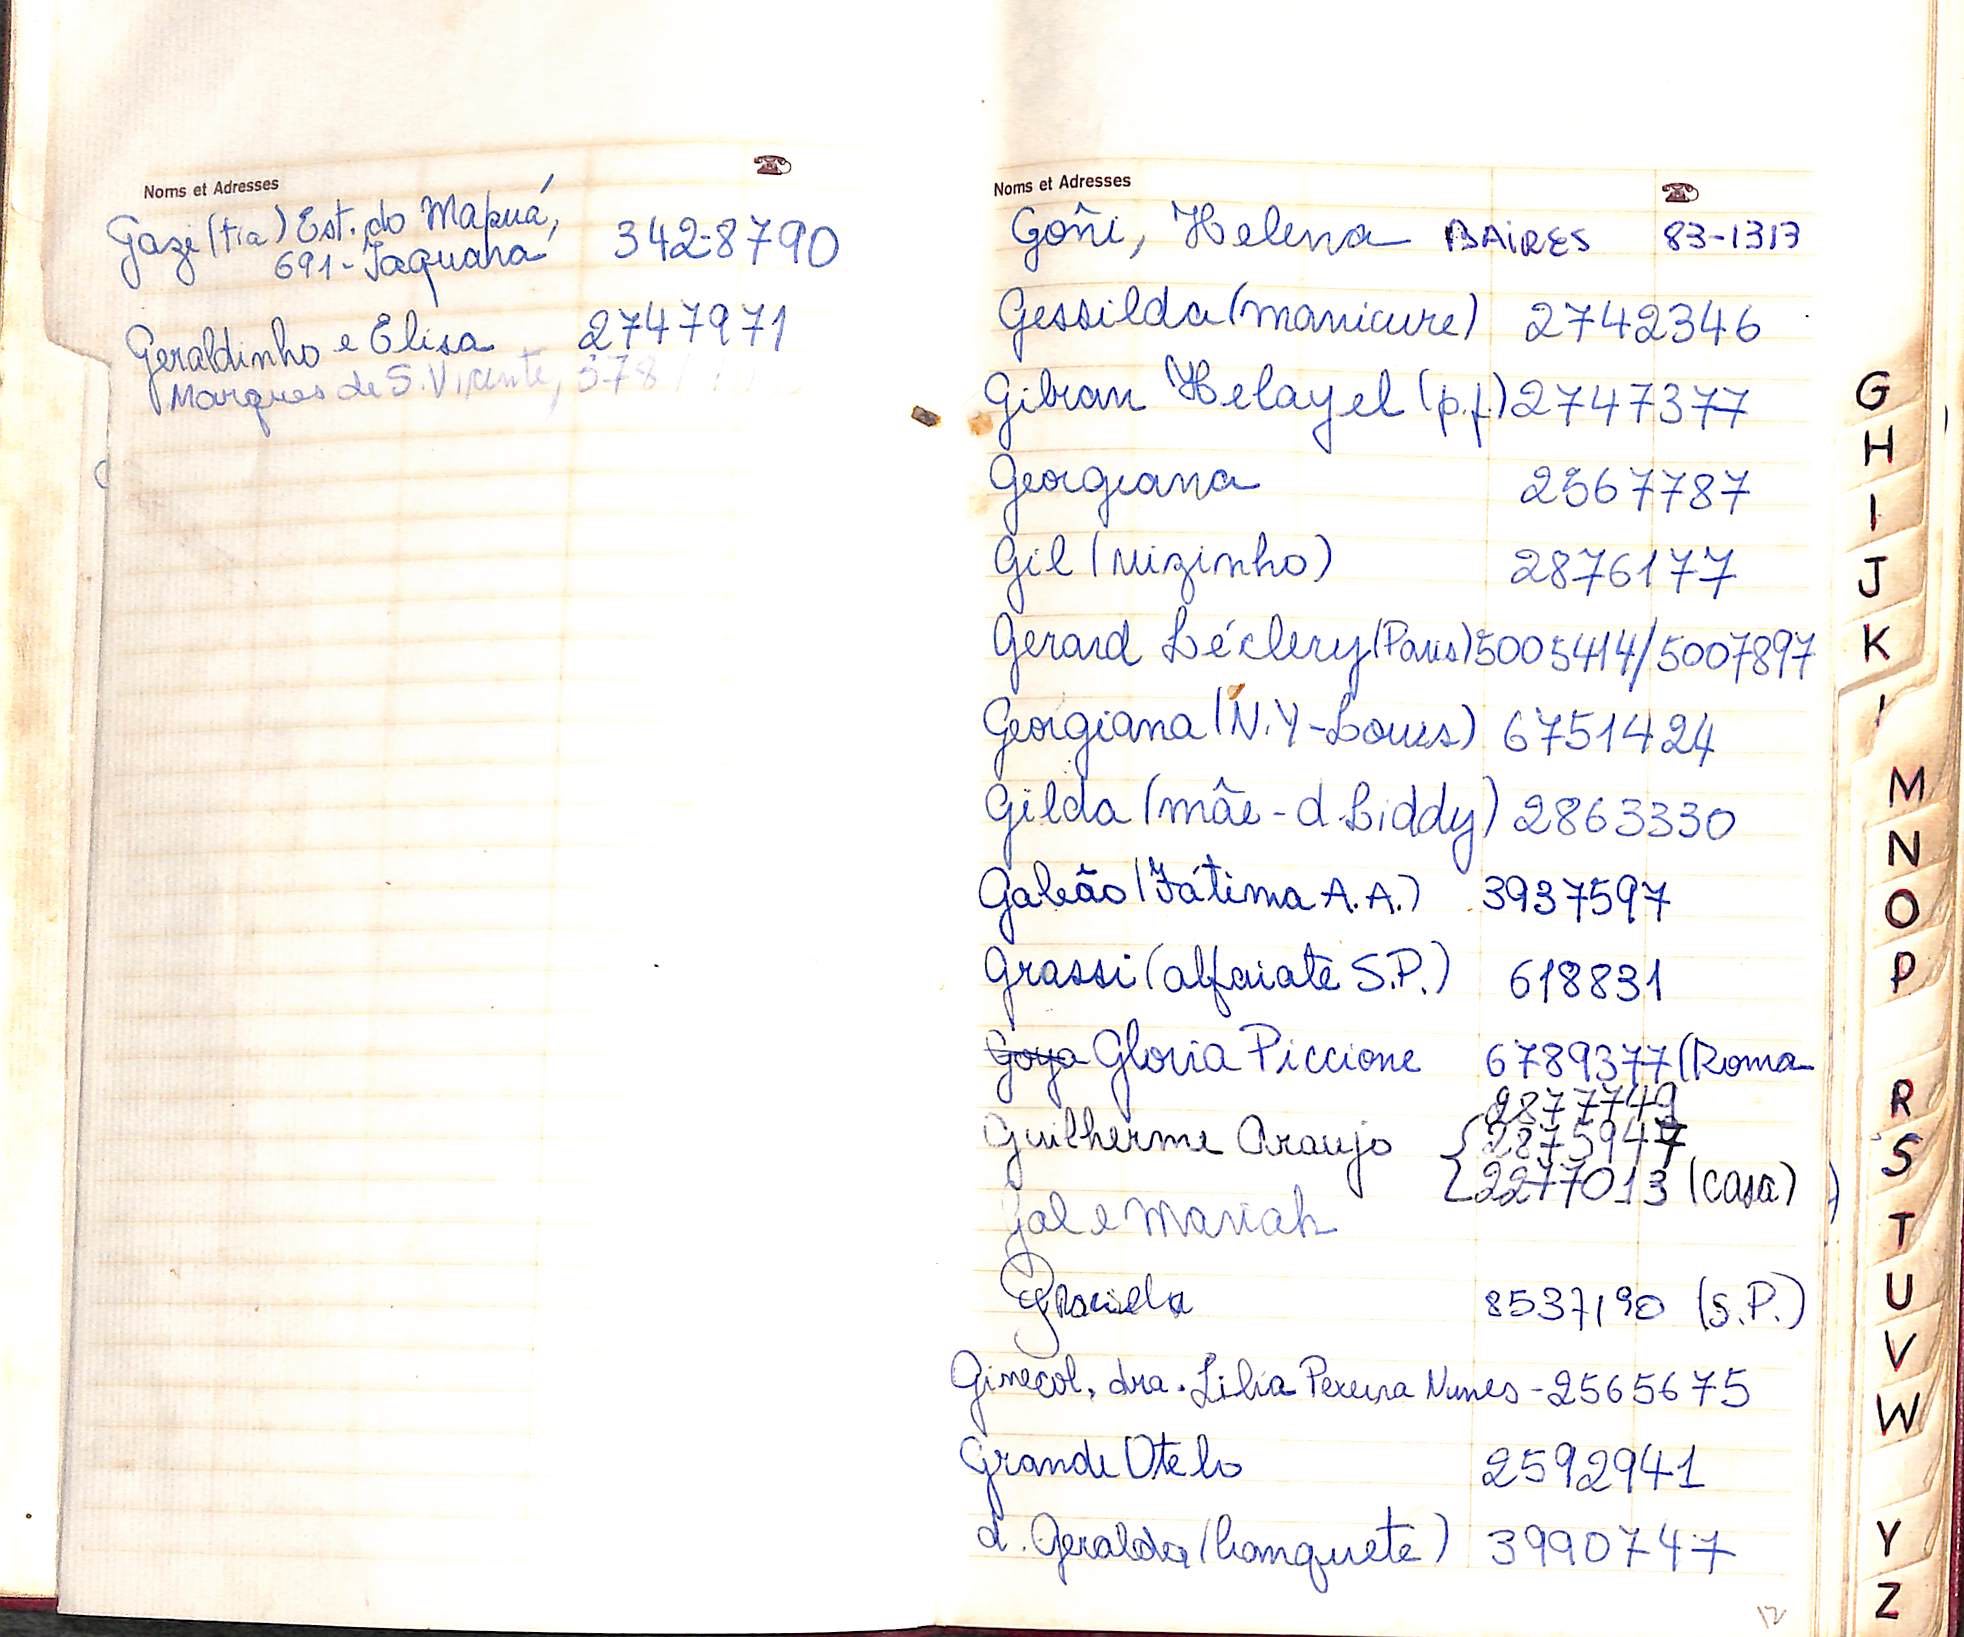 Noms et Adresses
Gazi (tia) Est. do Mapuá, 342-8790
691 - Taquara
Geraldinho e Elisa 2747971
Marques de S. Vicente, 378
Noms et Adresses
Goñi, Helena BAIRES 83-1313
Gessilda (manicure) 2742346
Gibran Helayel (p.f.) 2747377
Georgiana 2567787
Gil (vizinho) 2876177
Gerard Léclery (Paris) 5005414/5007897
Georgiana (N.Y - Loues) 6751424
Gilda (mãe - d. Liddy) 2863330
Galeão (Fátima A.A.) 3937597
Grassi (alfaiate S.P.) 618831
Goya Gloria Piccione 6789377 (Roma
2877749
Guilherme Araujo { 2875947
2277013 (casa)
Gal e Mariah
Graciela 8537190 (S.P.)
Ginecol, dra. Lilia Pereira Nunes - 2565675
Grande Otelo 2592941
d. Geralda (banquete) 3990747
12
G
H
I
J
K
M
N
O
P
R
S
T
U
V
W
Y
Z